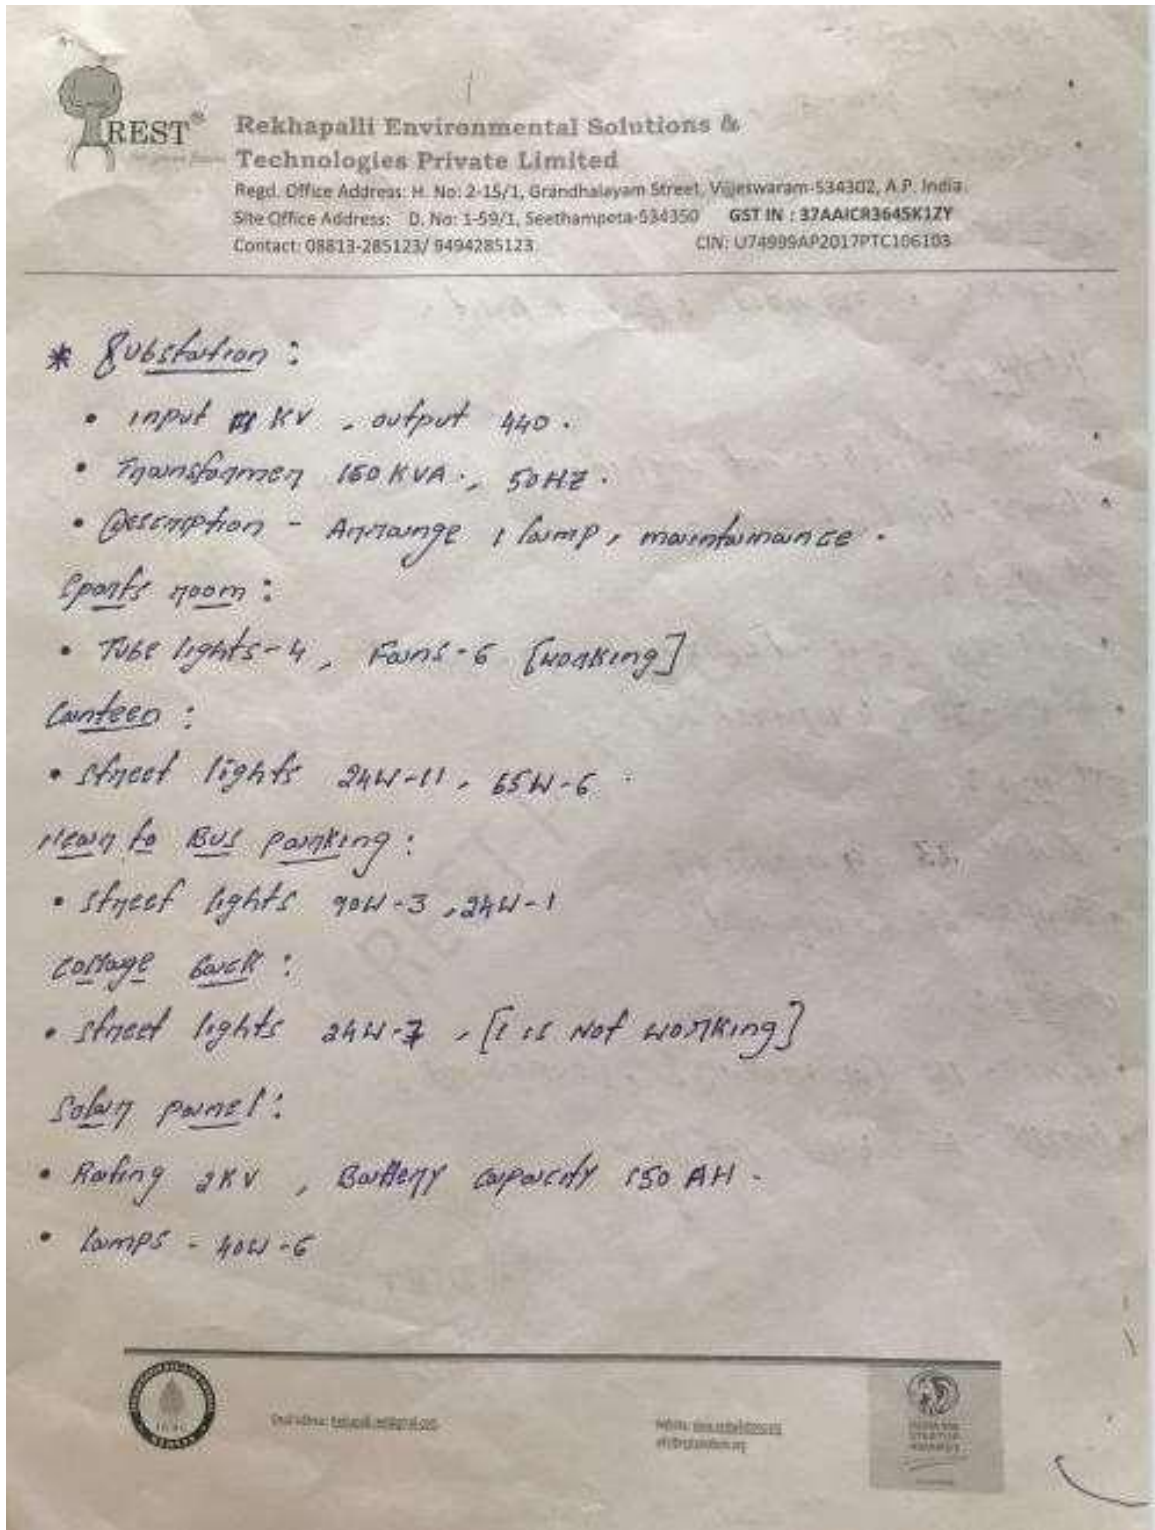 REST®
Rekhapalli Environmental Solutions &
Technologies Private Limited
Regd. Office Address: H. No: 2-15/1, Grandhalayam Street, Vijjeswaram-534302, A.P. India.
Site Office Address: D. No: 1-59/1, Seethampeta-534350 GST IN : 37AAICR3645K1ZY
Contact: 08813-285123/ 9494285123 CIN: U74999AP2017PTC106103
* Substation :
• input KV , output 440 .
• Transformer 160 KVA ., 50HZ .
• Description - Arrange 1 lamp, maintainance .
Sports room :
• Tube lights-4, Fans-6 [working]
Canteen :
• Street lights 24W-11, 65W-6 .
Near to Bus parking :
• Street lights 90W-3, 24W-1
Collage back :
• Street lights 24W-7, [1 is Not working]
Solar panel :
• Rating 2KV , Battery capacity 150 AH .
• lamps - 40W-6
REST